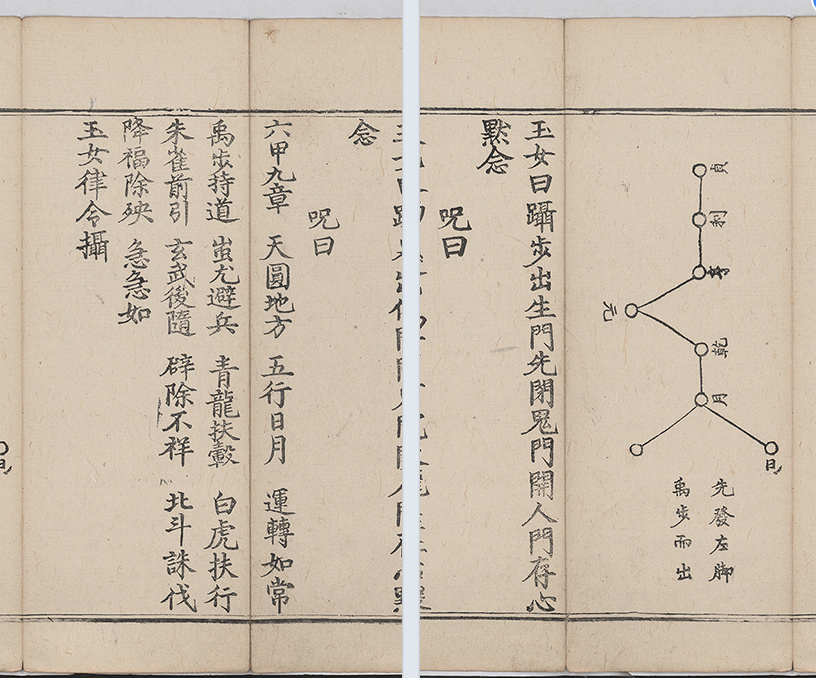 貞
利
亨
元
乾
月
日
先發左脚
禹步而出
玉女曰躡步出生門先閉鬼門開人門存心
黙念
呪曰
念
呪曰
六甲九章 天圓地方 五行日月 運轉如常
禹步持道 蚩尤避兵 青龍扶轂 白虎扶行
朱雀前引 玄武後隨 辟除不祥 北斗誅伐
降福除殃 急急如
玉女律令攝
日